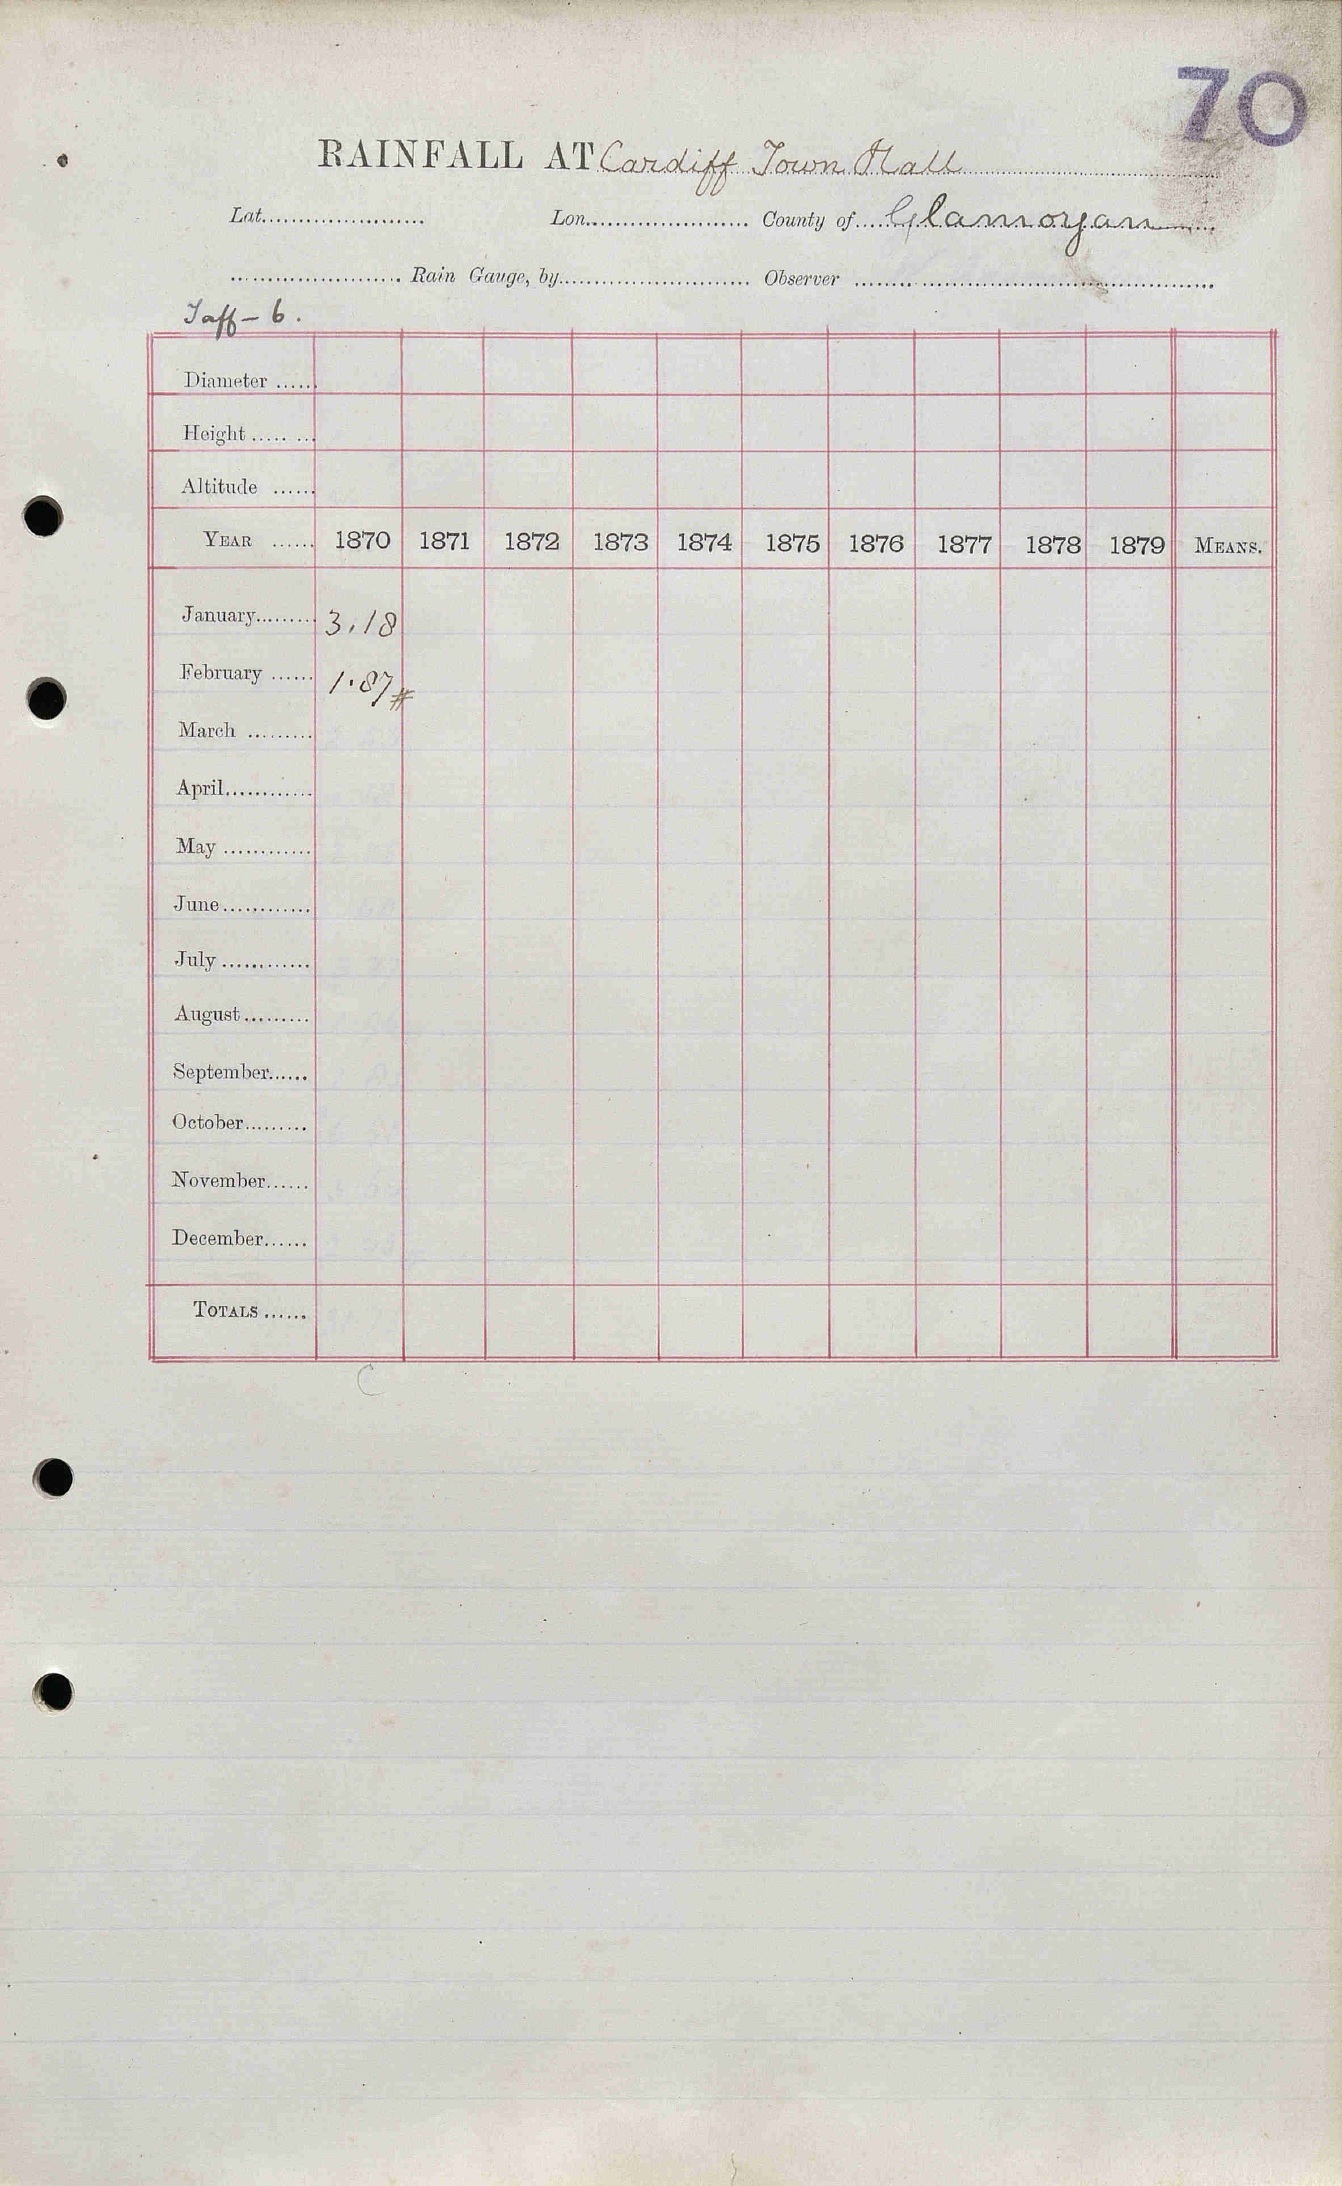 70
RAINFALL AT Cardiff Town Hall
Lat...................... Lon...................... County of Glamorgan
...................... Rain Gauge, by.......................... Observer ..........................
Taff - 6.
Diameter ......
Height ........
Altitude ......
YEAR ...... 1870 1871 1872 1873 1874 1875 1876 1877 1878 1879 MEANS.
January......... 3.18
February ...... 1.87#
March .........
April............
May ............
June............
July ............
August.........
September......
October.........
November......
December......
TOTALS ......
C